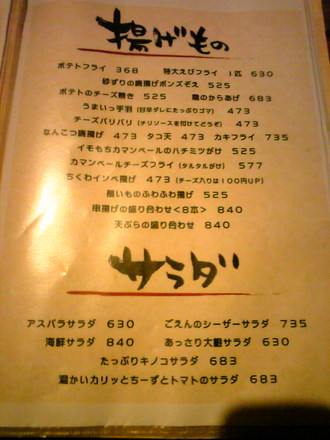 揚げもの
ポテトフライ 368 特大えびフライ 1匹 630
砂ずりの唐揚げポンズぞえ 525
ポテトのチーズ焼き 525 鶏のからあげ 683
うまいっ手羽(甘辛ダレにたっぷりゴマ) 473
チーズパリパリ(チリソースを付けてどうぞ) 473
なんこつ唐揚げ 473 タコ天 473 カキフライ 735
イモもちカマンベールのハチミツがけ 525
カマンベールチーズフライ(タルタルがけ) 577
ちくわインベ揚げ 473(チーズ入りは100円UP)
酔いものふわふわ揚げ 525
串揚げの盛り合わせ<8本> 840
天ぷらの盛り合わせ 840
サラダ
アスパラサラダ 630 ごえんのシーザーサラダ 735
海鮮サラダ 840 あっさり大根サラダ 630
たっぷりキノコサラダ 683
温かいカリッとちーずとトマトのサラダ 683